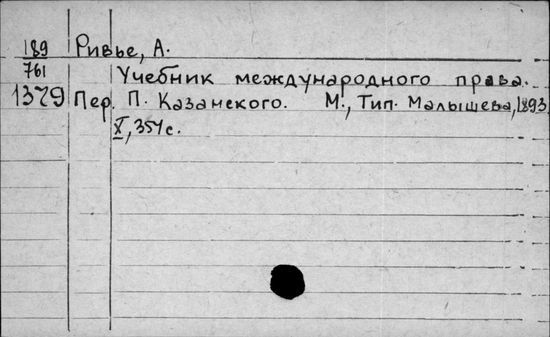 189 Ривье, А.
761 Учебник международного права.
1379 Пер. П. Казанского. М., Тип. Малышева, 1893,
X, 354 с.